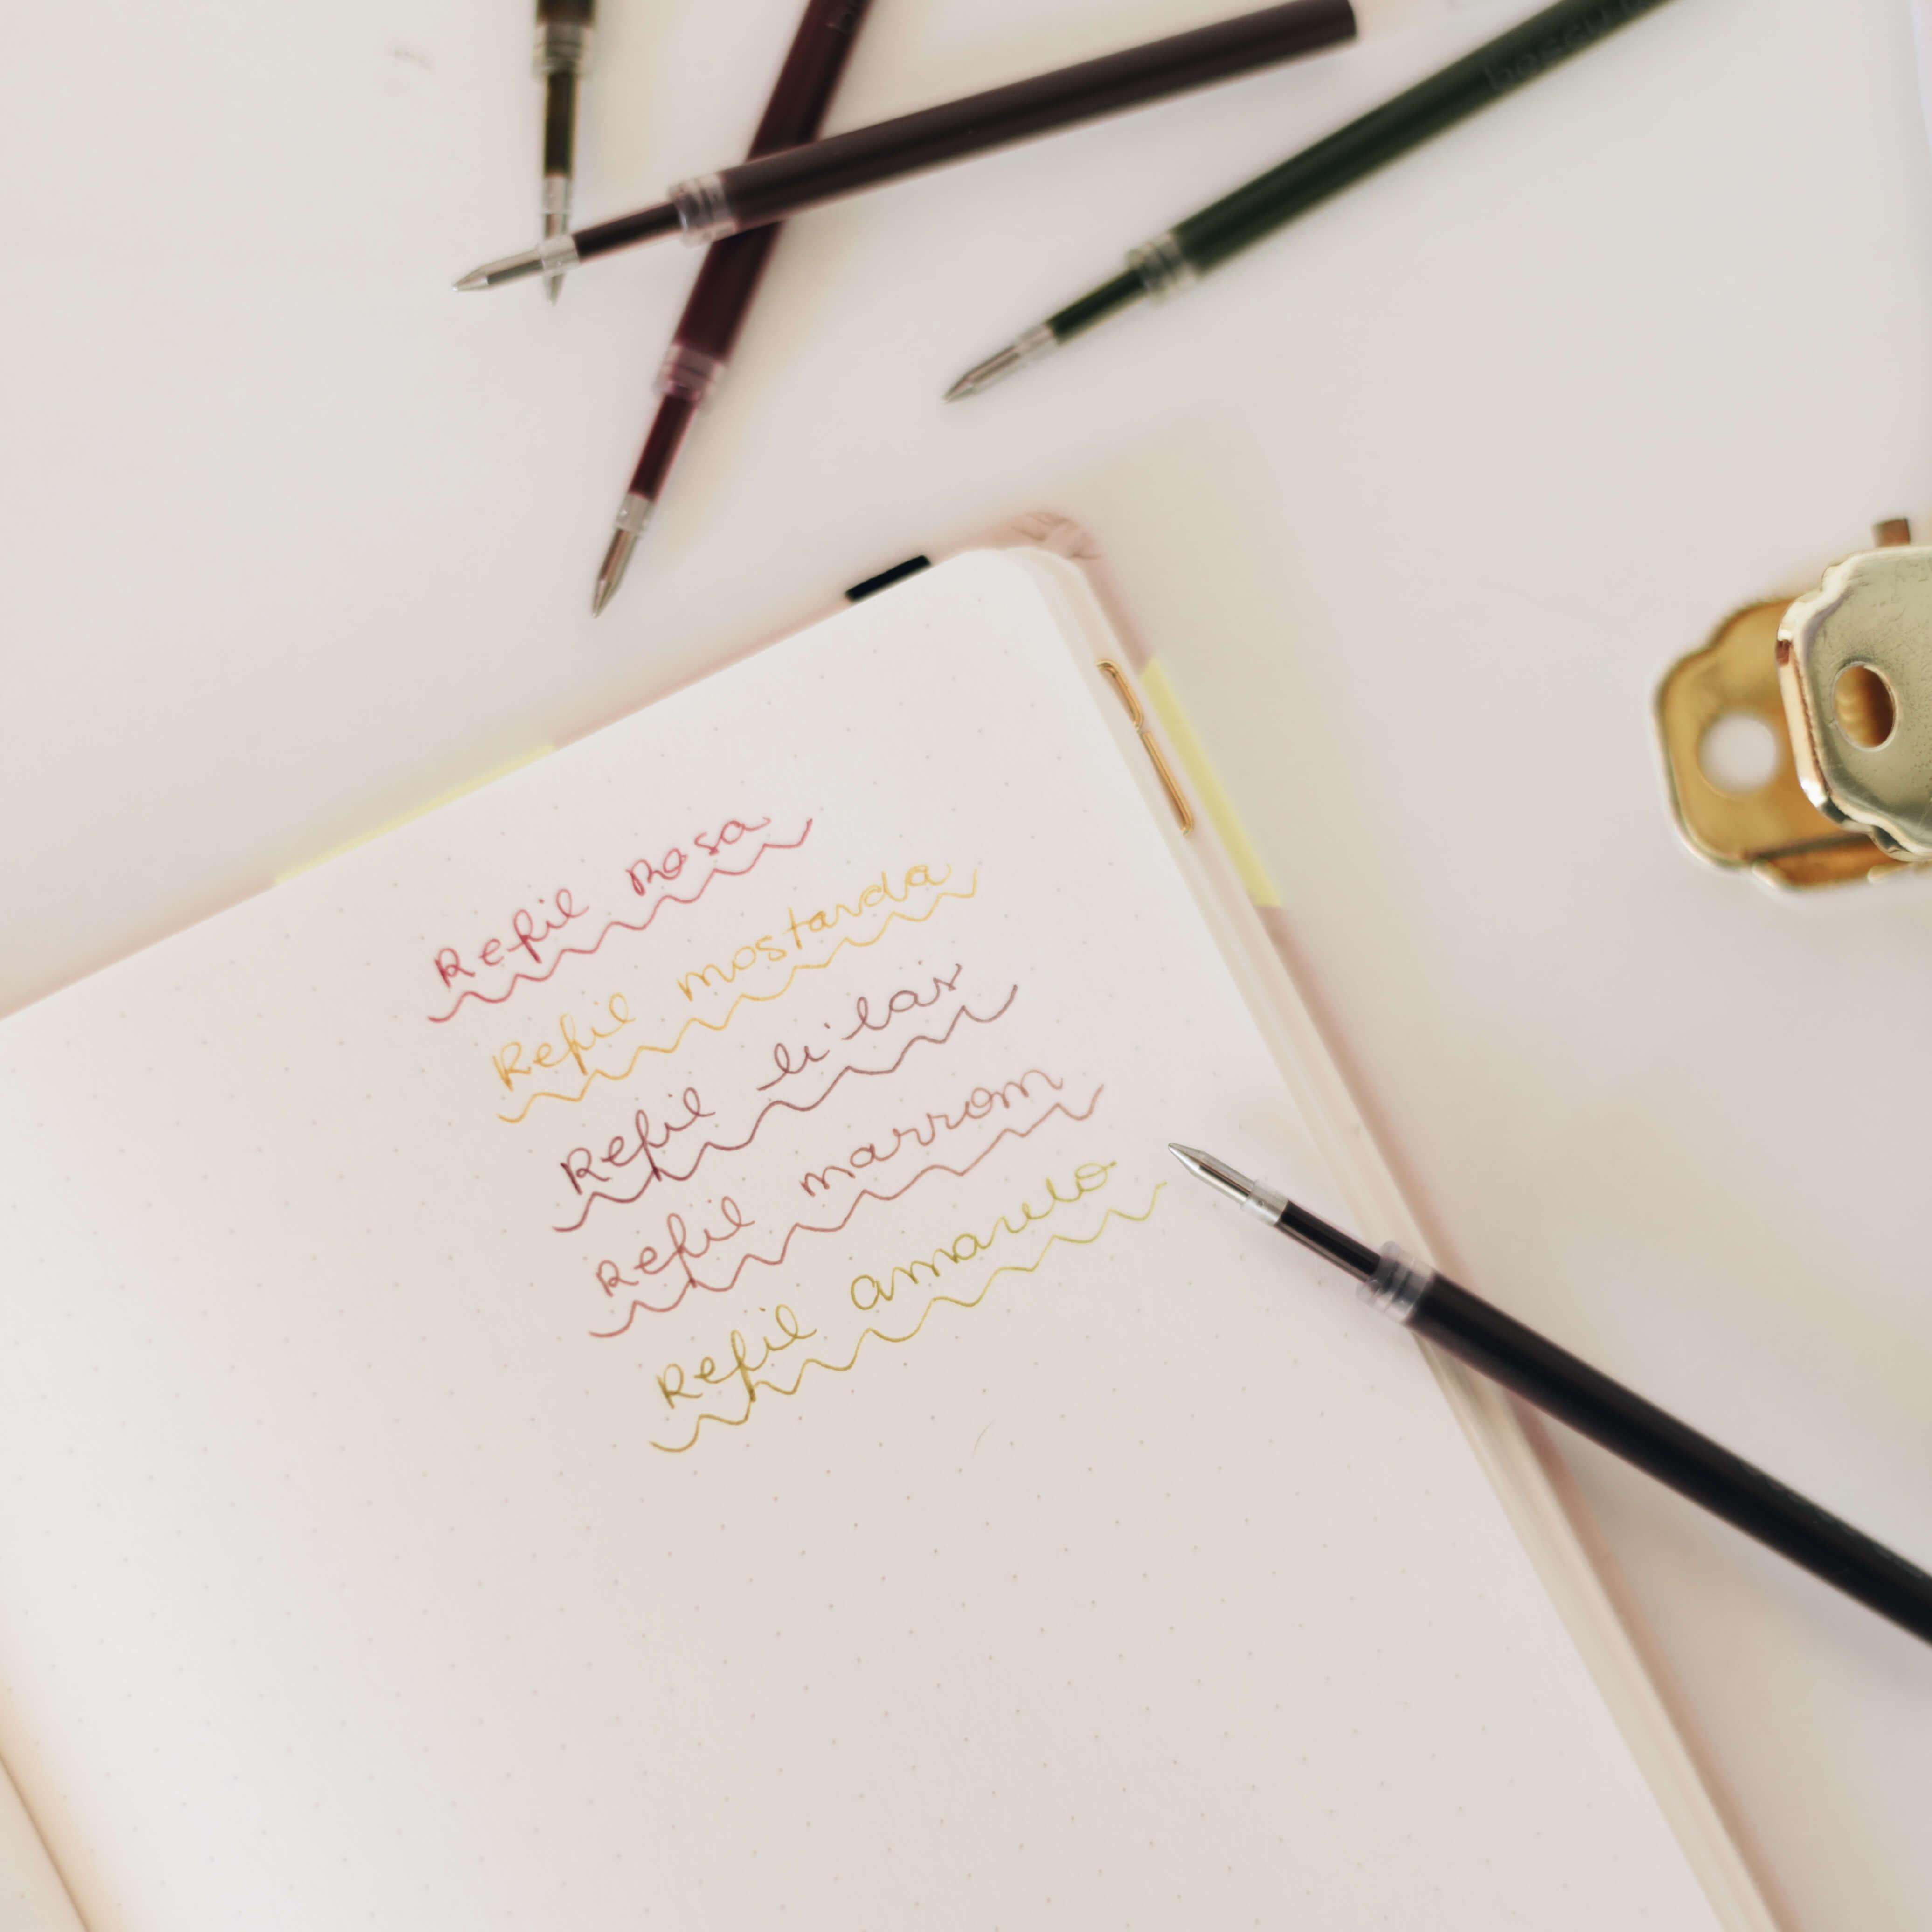 Refil rosa
Refil mostarda
Refil lilás
Refil marrom
Refil amarelo